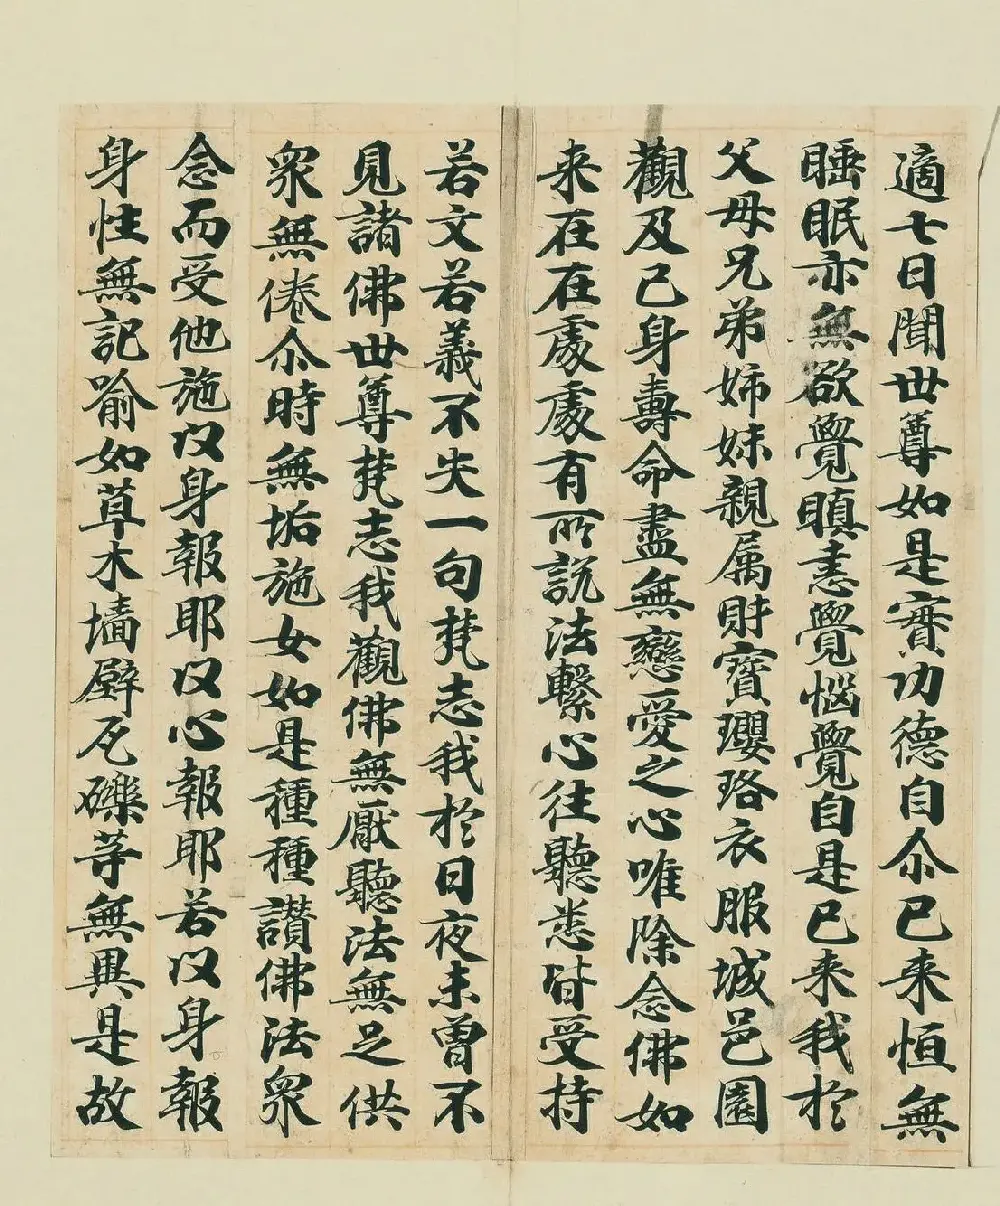 適七日聞世尊如是實功德自尒已来恒無
睡眠亦無欲覺瞋恚覺惱覺自是已来我於
父母兄弟姉妹親属財寶瓔珞衣服城邑園
觀及已身壽命盡無戀愛之心唯除念佛如
来在在處處有所説法繫心往聽悉皆受持
若文若義不失一句梵志我於日夜未曽不
見諸佛世尊梵志我觀佛無厭聽法無足供
衆無倦尒時無垢施女如是種種讃佛法衆
念而受他施以身報耶以心報耶若以身報
身性無記喻如草木墻壁瓦礫等無異是故